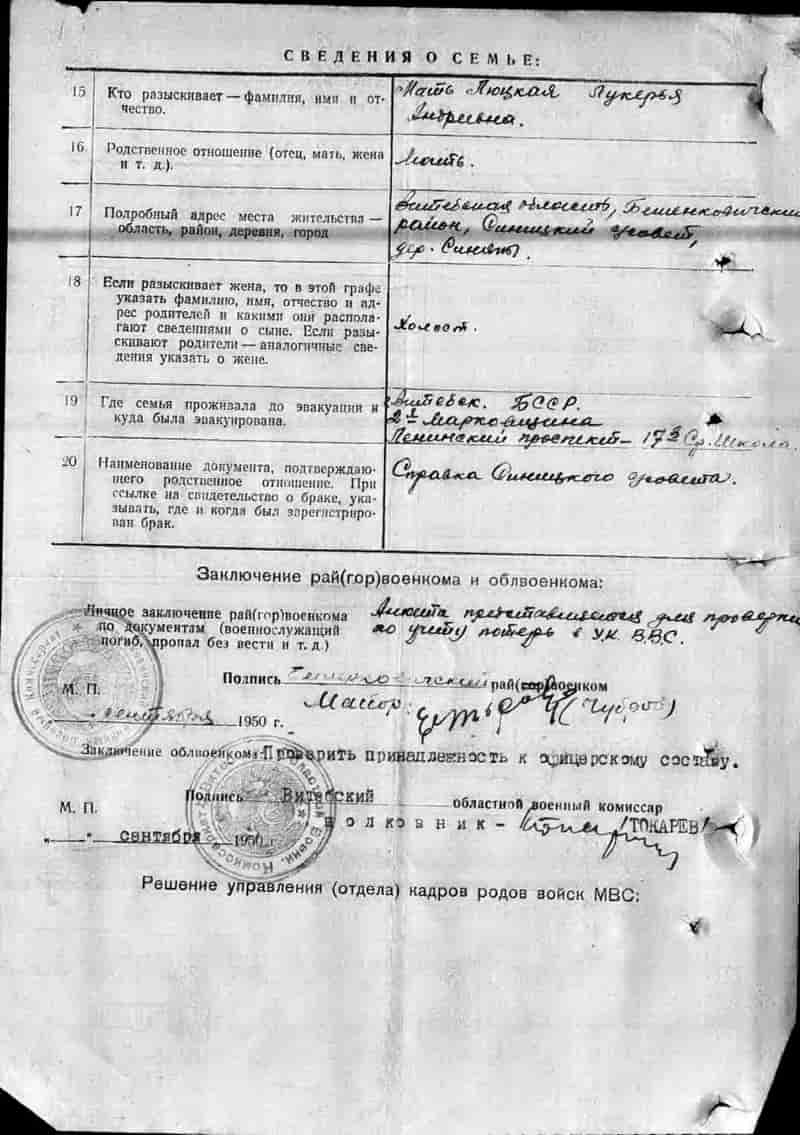 СВЕДЕНИЯ О СЕМЬЕ:
15 Кто разыскивает — фамилия, имя и от-
чество.
Мать Люцкая Лукерья
Андреевна.
16 Родственное отношение (отец, мать, жена
и т. д.).
Мать.
17 Подробный адрес места жительства —
область, район, деревня, город
Витебская область, Бешенковический
район, Синицкий с/совет,
дер.
18 Если разыскивает жена, то в этой графе
указать фамилию, имя, отчество и ад-
рес родителей и какими они распола-
гают сведениями о сыне. Если разы-
скивают родители — аналогичные све-
дения указать о жене.
Холост.
19 Где семья проживала до эвакуации и
куда была эвакуирована.
Витебск. БССР.
2я Марковщина
Ленинский проспект — 17я Ср. Школа.
20 Наименование документа, подтверждаю-
щего родственное отношение. При
ссылке на свидетельство о браке, ука-
зывать, где и когда был зарегистриро-
ван брак.
Справка Синицкого с/совета.
Заключение рай(гор)военкома и облвоенкома:
Личное заключение рай(гор)военкома
по документам (военнослужащий
погиб, пропал без вести и т. д.)
Анкета представляется для проверки
по учету потерь в УК ВВС.
Подпись Бешенковичский рай(гор)военком
М. П.
Майор (Чубров)
сентября 1950 г.
Заключение облвоенкома Проверить принадлежность к офицерскому составу.
Подпись Витебский областной военный комиссар
М. П.
полковник - /ТОКАРЕВ/
„ " сентября 1950 г.
Решение управления (отдела) кадров родов войск МВС: